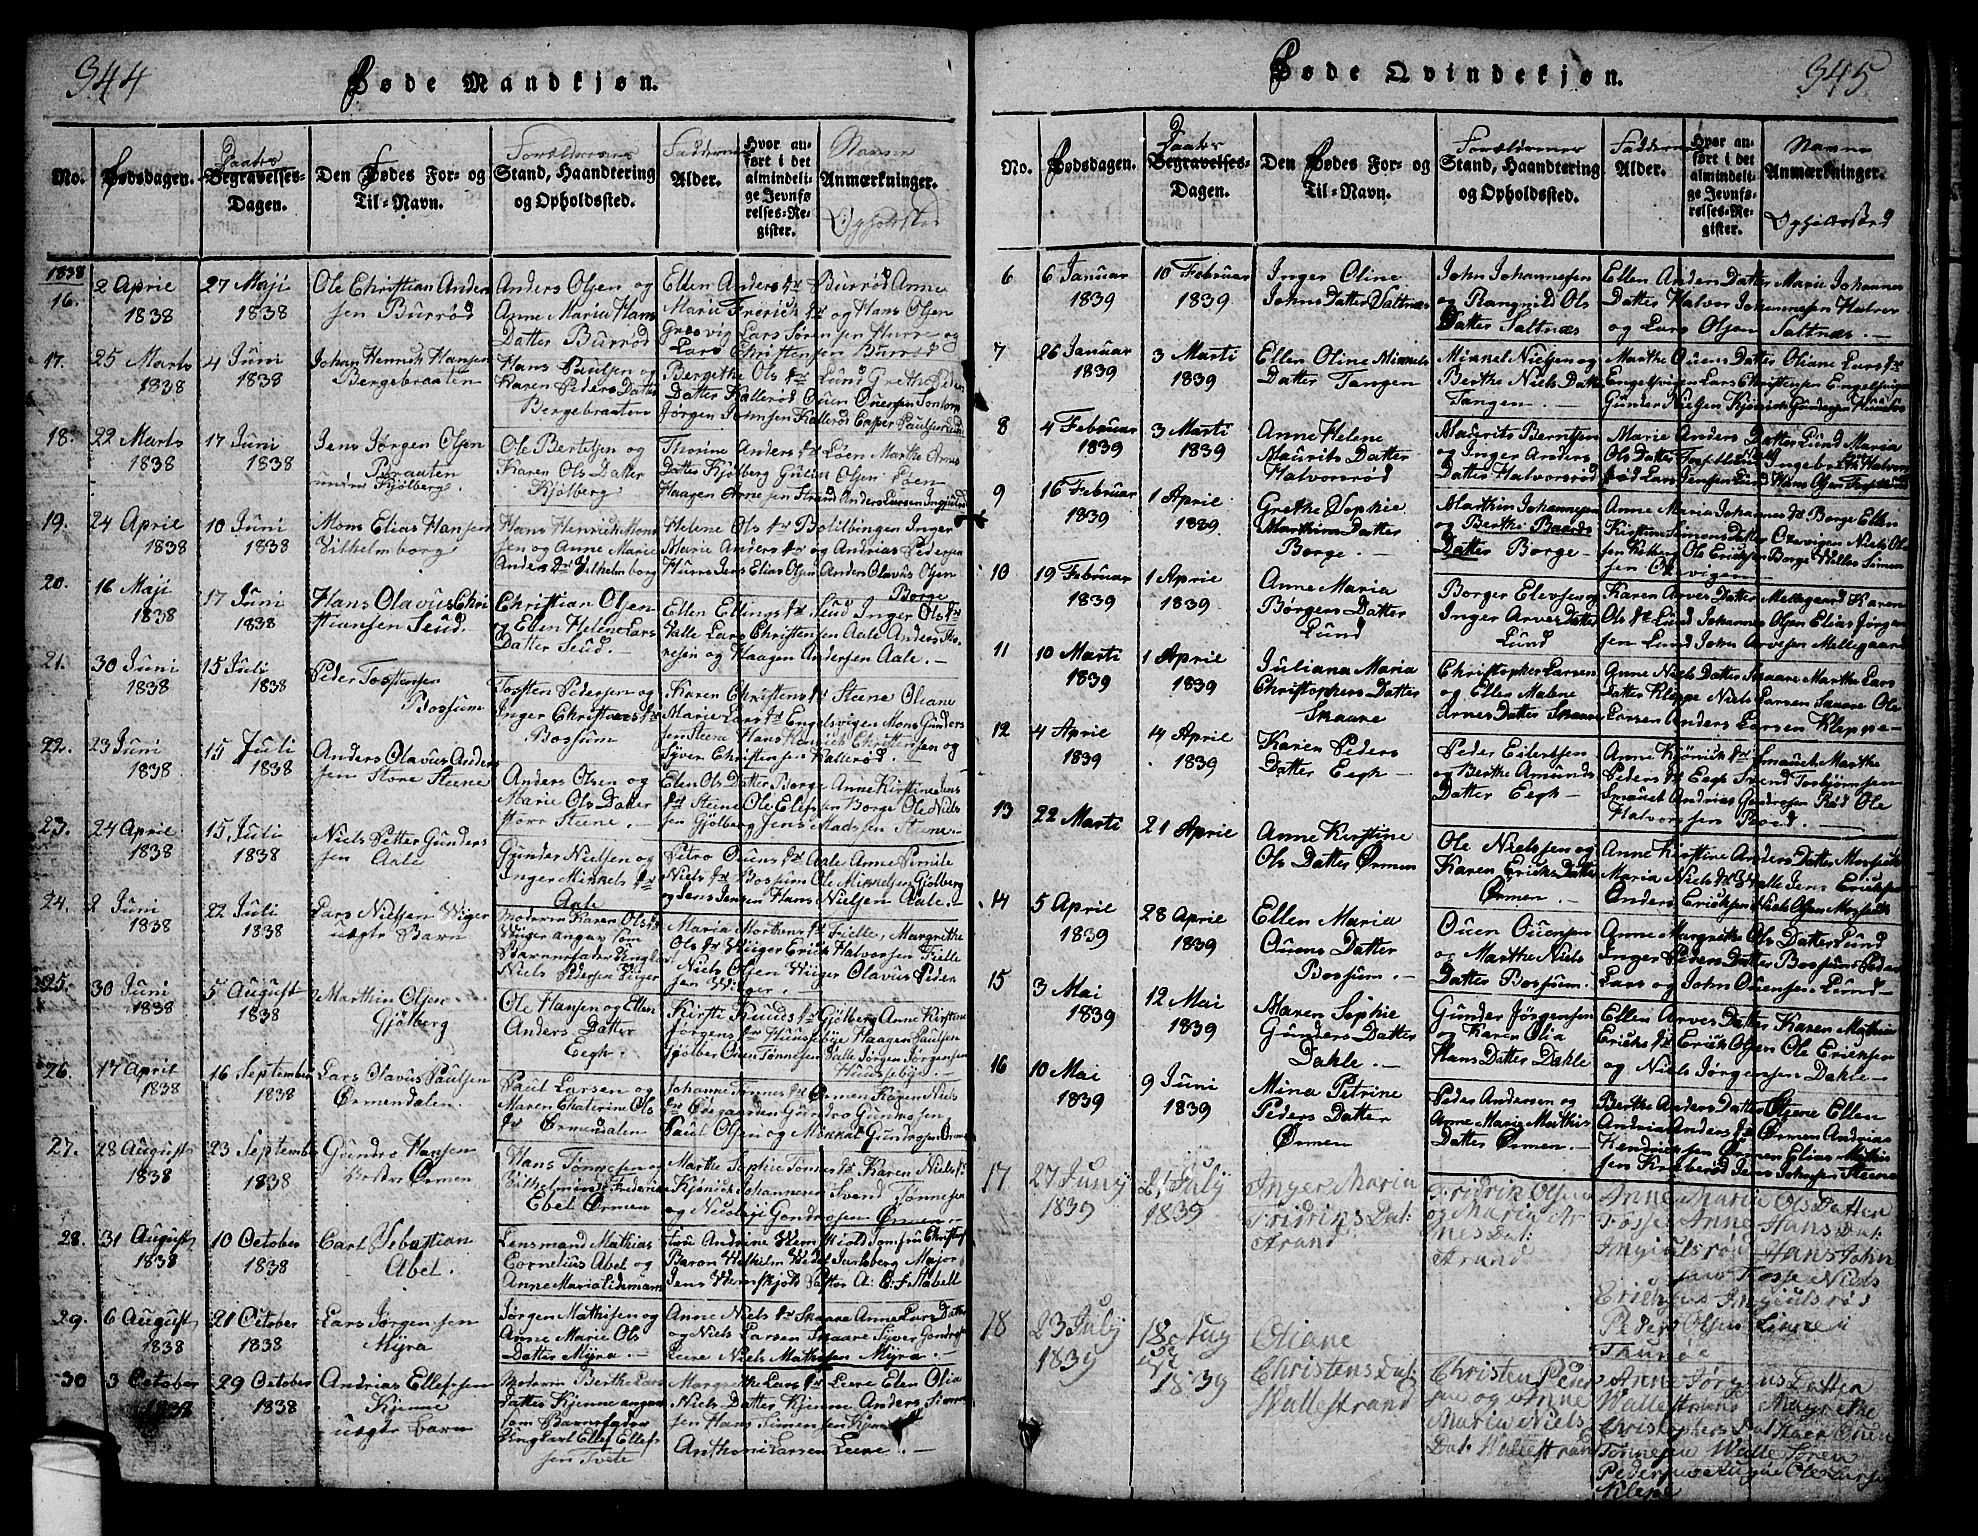 344
Døde Mandkjøn.
No.
Fødsdagen.
Daabs
Begravelses-
Dagen.
Den Fødes For- og
Til-Navn.
Forældrenes
Stand, Haandtering
og Opholdssted.
Faddernes
Alder.
Hvor an-
ført i det
almindeli-
ge Jevnfø-
relses-Re-
gister.
Navne
Anmærkninger.
Opholdsted
1838
16.
2 Aprie
1838
27 Maji
1838
Ole Christian Anders
sen Burrød
Anders Olsen og
Anne Maria Hans
Datter Burrød
Ellen Anders Dr Burrød Anne
Marie Frerich Dr og Hans Olsen
Gresvig Lars Søren sen Hurre og
Lars Christensen Burrød
17.
25 Marts
1838
4 Juni
1838
Johan Henrich Hansen
Bergebraaten
Hans Paulsen og
Karen Peders Datter
Bergebraaten
Bergethe Ols Dr Lund Grethe Peder
Datter Kallerød Ouen Ouersen Tontorp
Jørgen Jensen Kallerød Casper Paulsen Lund
18.
22 Marts
1838
17 Juni
1838
Jens Jørgen Olsen
Braaten
under Kjølberg.
Ole Bertelsen
Karen Ols Datter
Kjølberg
Thorine Anders Dr Löen Marthe Arnes
Datter Kjølberg Gulin Olsen Löen
Haagen Arnesen Strand Anders Larsen
19.
24 Aprie
1838
10 Juni
1838
Mons Elias Hansen
Vilhelmborg
Hans Henrich Mons
sen og Anne Marie
Anders Dr Vilhelmborg
Helene Ols Dr Inger
Marie Anders Dr og Andrias Pedersen
Hurre Jens Elias Olsen Anders Olavus Olsen
Borge
20.
16 Maji
1838
17 Juni
1838
Hans Olavus Chri
stiansen Seud.
Christian Olsen
og Ellen Helene Lars
Datter Seud.
Ellen Ellings Dr Seud Inger Ols Dr
Valle Lars Christensen Aale Anders Tho
resen og Haagen Andersen Aale.
21.
30 Juni
1838
15 Juli
1838
Peder Tostensen
Bossum
Tosten Pedersen og
Inger Christens Dr
Bossum
Karen Christens Dr Steene Oliane
Marie Lars Dr Engelsvigen Mons Gunders
sen Steene Hans Henrich Christensen og
Syver Christensen Kallerød.
22.
23 Juni
1838
15 Juli
1838
Anders Olavus Anders
sen Store Steene
Anders Olsen og
Marie Ols Datter
Store Steene.
Elen Ols Datter Borge Anne Kirstine Jens
Dr Steene Ole Elefsen Borge Ole Niels
sen Gjølberg Jens Madssen Steene.
23.
24 Aprie
1838
15 Juli
1838
Niels Petter Gunders
sen Aale
Gunder Nielsen og
Inger Mikkels Dr
Aale
Petro Ouens Dr Aale Anne Pernile
Niels Dr Bossum Ole Mikkelsen Gjølberg
og Jens Jensen Hans Nielsen Aale.
24.
2 Juni
1838
22 Juli
1838
Lars Nielsen Wiger
uægte Barn
Moderen Karen Ols Dr
Wiger angav som
Barnefader Ungk.
Niels Pedersen Wiger
Maria Mortens Dr Fielle, Margrethe
Ols Dr Wiger Erich Halvorssen Fielle
Niels Olsen Wiger Olavus Peder
sen Wiger.
25.
30 Juni
1838
5 August
1838
Marthin Olsen
Gjølberg
Ole Hansen og Ellen
Anders Datter
Eegh.
Kirsti Knuds Dr Gjølberg Anne Kirstine
Jørgens Dr Huusebye Haagen Paulsen
Gjølber Ouen Tønnesen Valle Jørgen Jørgensen
Huusebye.
26.
17 April
1838
16 September
1838
Lars Olavus Paulsen
Ørmendalen.
Paul Larsen og
Maren Chaterine Ols
Dr Ørmendalen
Johanne Tonnes Dr Ørmen Karen Niels
Dr Ødegaarden Gundro Gundrosen
Paul Olsen og Mikkel Gundrosen Ørmen
27.
28 August
1838
23 September
1838
Gundro Hansen
Ørmen
Hans Tønnesen og
Vilhelmine Frederica
Ebel Ørmen
Marthe Sophie Tonnes Dr Karen Niels Dr
Kjønich Johannesen Svend Tønnesen
og Nicolaji Gondrosen Ørmen.
28.
31 August
1838
10 October
1838
Carl Sebastian
Abel.
Lensmand Mathias
Cornelius Abel og
Anne Maria Lidemann
Fru Andrine Wem
Baron Wilhelm Wedel Jarlsberg Major
Jens Wemskjold Pastor A: C. F. Stabell
29.
6 August
1838
21 October
1838
Lars Jørgensen
Myra
Jørgen Mathisen og
Anne Marie Ols
Datter Myra
Anne Niels Dr Skaare Anne Lars Datter
og Niels Larsen Skaare Syver Gondros
Leere Niels Mathisen Myra.
30
3 October
1838
29 October
1838
Andrias Ellefssen
Kjenne
uægte barn
Moderen Berthe Lars
Datter Kjenne angav
som Barnefader
Ungkarl Ellef Ellefs
sen Tvete
Margrethe Lars Dr Leere Elen Olia
Niels Datter Kjenne Anders
sen Hans Simensen Kjenne
Anthoni Larsen Leere.
345
Døde Qvindekjøn.
No.
Fødsdagen.
Daabs
Begravelses-
Dagen.
Den Fødes For- og
Til-Navn.
Forældrenes
Stand, Haandtering
og Opholdssted.
Faddernes
Alder.
Hvor an-
ført i det
almindeli-
ge Jevnfø-
relses-Re-
gister.
Navne
Anmærkninger.
Opholdssted
6
6 Januar
1839
10 Februar
1839
Inger Oline
Johns Datter Saltnæs
John Johannesen
og Rangnild Ols
Datter Saltnæs
Ellen Anders Datter Marie Johannes
Datter Halvor Johannesen Halvor
og Lars Olsen Saltnæs.
7
26 Januar
1839
3 Marti
1839
Ellen Oline Mikkels
Datter Tangen
Mikkel Nielsen og
Berthe Niels Datter
Tangen.
Marthe Ouens Datter Oliane Lars Dr
Engelsvigen Lars Christensen Engelsvigen
Gunder Nielsen Kjønich
8
4 Februar
1839
3 Marti
1839
Anne Helene
Maurits Datter
Halvorsrød
Mauerits Berntsen
og Inger Anders
Datter Halvorsrød
Marie Anders Datter Lund Maria
Ols Datter Ingebreth Halvors
rød Lars Jensen Lund Hans Olsen
9
16 Februar
1839
1 Aprie
1839
Grethe Sophie
Marthins Datter
Borge.
Marthin Johannesen
og Berthe Baards
Datter Borge
Anne Maria Johannes Dr Borge Ellen
Kirstine Simons Datter Oxevigen Niels Ol
sen Kilberg Ole Ericksen Borge Hilles Simon
sen Oxevigen
10
19 Februar
1839
1 Aprie
1839
Anne Maria
Børgers Datter
Lund
Borger Elevsen og
Inger Arves Datter
Lund
Karen Arves Datter Mellegaard Karen
Ols Dr Lund Johannes Olsen Elias Jørgen
sen Lund John Arvesen Mellegaard
11
10 Marti
1839
1 Aprie
1839
Juliana Maria
Christophers Datter
Skaare
Christopher Larsen
og Ellen Malene
Arnes Datter Skaare
Anne Niels Datter Skaare Marthe Lars
Datter Kleppe Niels Larsen Skaare Ole
Larsen Anders Larsen Kleppe
12
4 Aprie
1839
14 Aprie
1839
Karen Peders
Datter Eegh
Peder Eilertsen
og Berthe Amunds
Datter Eegh
Anne Kjønich Dr Smauet Marthe
Peders Dr Eegh Svend Torbjørnsen
Smauet Andrias Gundrosen Rød Ole
Halvorssen Roed.
13
22 Marti
21 Aprie
Anne Kirstine
Ols Datter Ørmen
Ole Nielssen og
Karen Ericks Datter
Ørmen.
Anne Kirstine Anders Datter Mossevik
Maria Niels Dr Walle Jens Ericksen
Anders Ericksen Niels Olsen Mossevik
14
5 Aprie
1839
28 Aprie
1839
Ellen Maria
Ouens Datter
Bossum.
Ouen Ouensen
og Marthe Niels
Datter Bossum.
Anne Margrethe Ols Datter Lund
Inger Peders Datter Bossum Peder
Lars og John Ouensen Lund
15
3 Mai
1839
12 Mai
1839
Maren Sophie
Gunders Datter
Dahle
Gunder Jørgensen
og Karen Olia
Hans Datter Dahle
Ellen Arves Datter Karen Mathia
Ericks Dr Erick Olsen Ole Ericksen
og Niels Jørgensen Dahle
16
10 Mai
1839
9 Juni
1839
Mina Petrine
Peders Datter
Ørmen
Peder Andersen og
Anne Maria Mathis
Datter Ørmen.
Berthe Anders Datter Stjene Ellen
Andria Anders Dr Ørmen Andrias
Hendricksen Ørmen Elias Mathi
sen Krabberød Jens Johnsen Steene
17
27 Juny
1839
21 July
1839
Inger Maria
Fridriks Dat:
Strand
Fridrik Olsen
og Maria Ar
nes Dat:
Strand
Anne Maria Ols Datter
Fosse Anne Hans Dat:
Ingiulsrød Hans John
sen Fosse Niels
Ericksen Ingiulsrød
Peder Olsen Leere i
Thune
18
23 July
1839
18 Aug
1839
Oliane
Christens Dat:
Wallestrand
Christen Peder
sen og Anne
Maria Niels
Dat: Wallestrand
Anne Jørgens Datter
Wallestrand Magrete
Christophers Dat: Ouen
Tonnesen Walle Søren
Pedersen Ole Larsen
Klepe